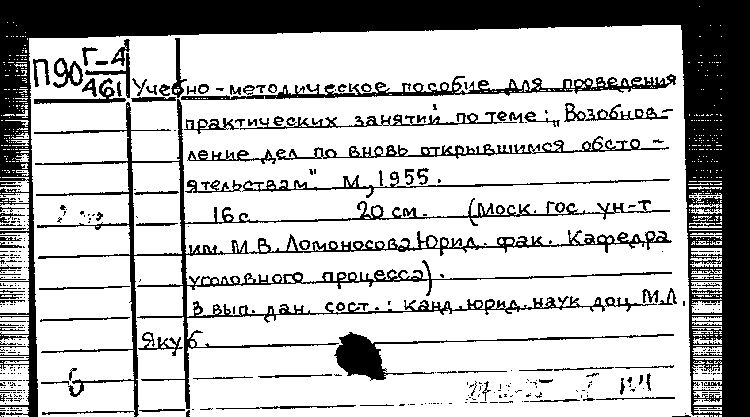 П90 Г-4
461 Учебно-методическое пособие для проведения
практических занятий по теме: „Возобнов-
ление дел по вновь открывшимся обсто-
ятельствам". М., 1955.
16 с. 20 см. (Моск. гос. ун-т
им. М.В. Ломоносова Юрид. фак. Кафедра
уголовного процесса).
В вып. дан. сост.: канд. юрид. наук доц. М.Л.
Якуб.
б